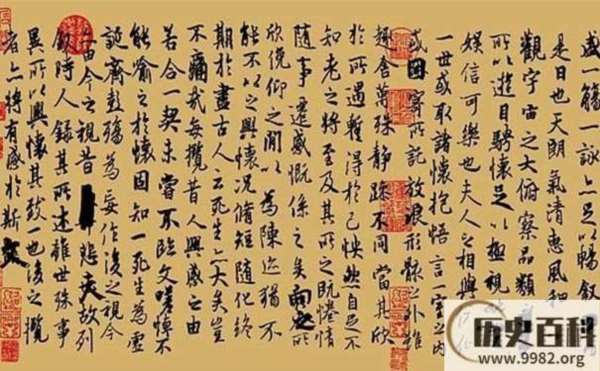 盛一觴一詠亦足以暢敘
是日也天朗氣清惠風和
觀宇宙之大俯察品類
所以遊目騁懷足以極視
娛信可樂也夫人之相與
一世或取諸懷抱悟言一室之內
或因寄所託放浪形骸之外雖
趣舍萬殊靜躁不同當其欣
於所遇暫得於己怏然自足不
知老之將至及其所之既惓情
隨事遷感慨係之矣向之所
欣俛仰之閒以為陳迹猶不
能不以之興懷況脩短隨化終
期於盡古人云死生亦大矣豈
不痛哉每攬昔人興感之由
若合一契未嘗不臨文嗟悼不
能喻之於懷固知一死生為虛
誕齊彭殤為妄作後之視今
亦由今之視昔悲夫故列
敘時人錄其所述雖世殊事
異所以興懷其致一也後之攬
者亦將有感於斯文
历史百科
www.9982.org